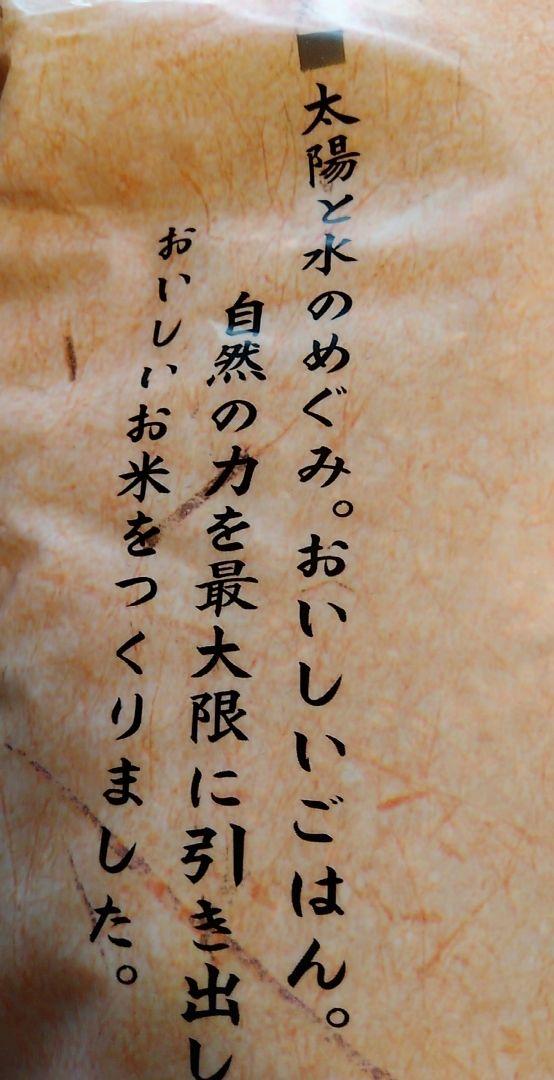 太陽と水のめぐみ。おいしいごはん。
自然の力を最大限に引き出し
おいしいお米をつくりました。